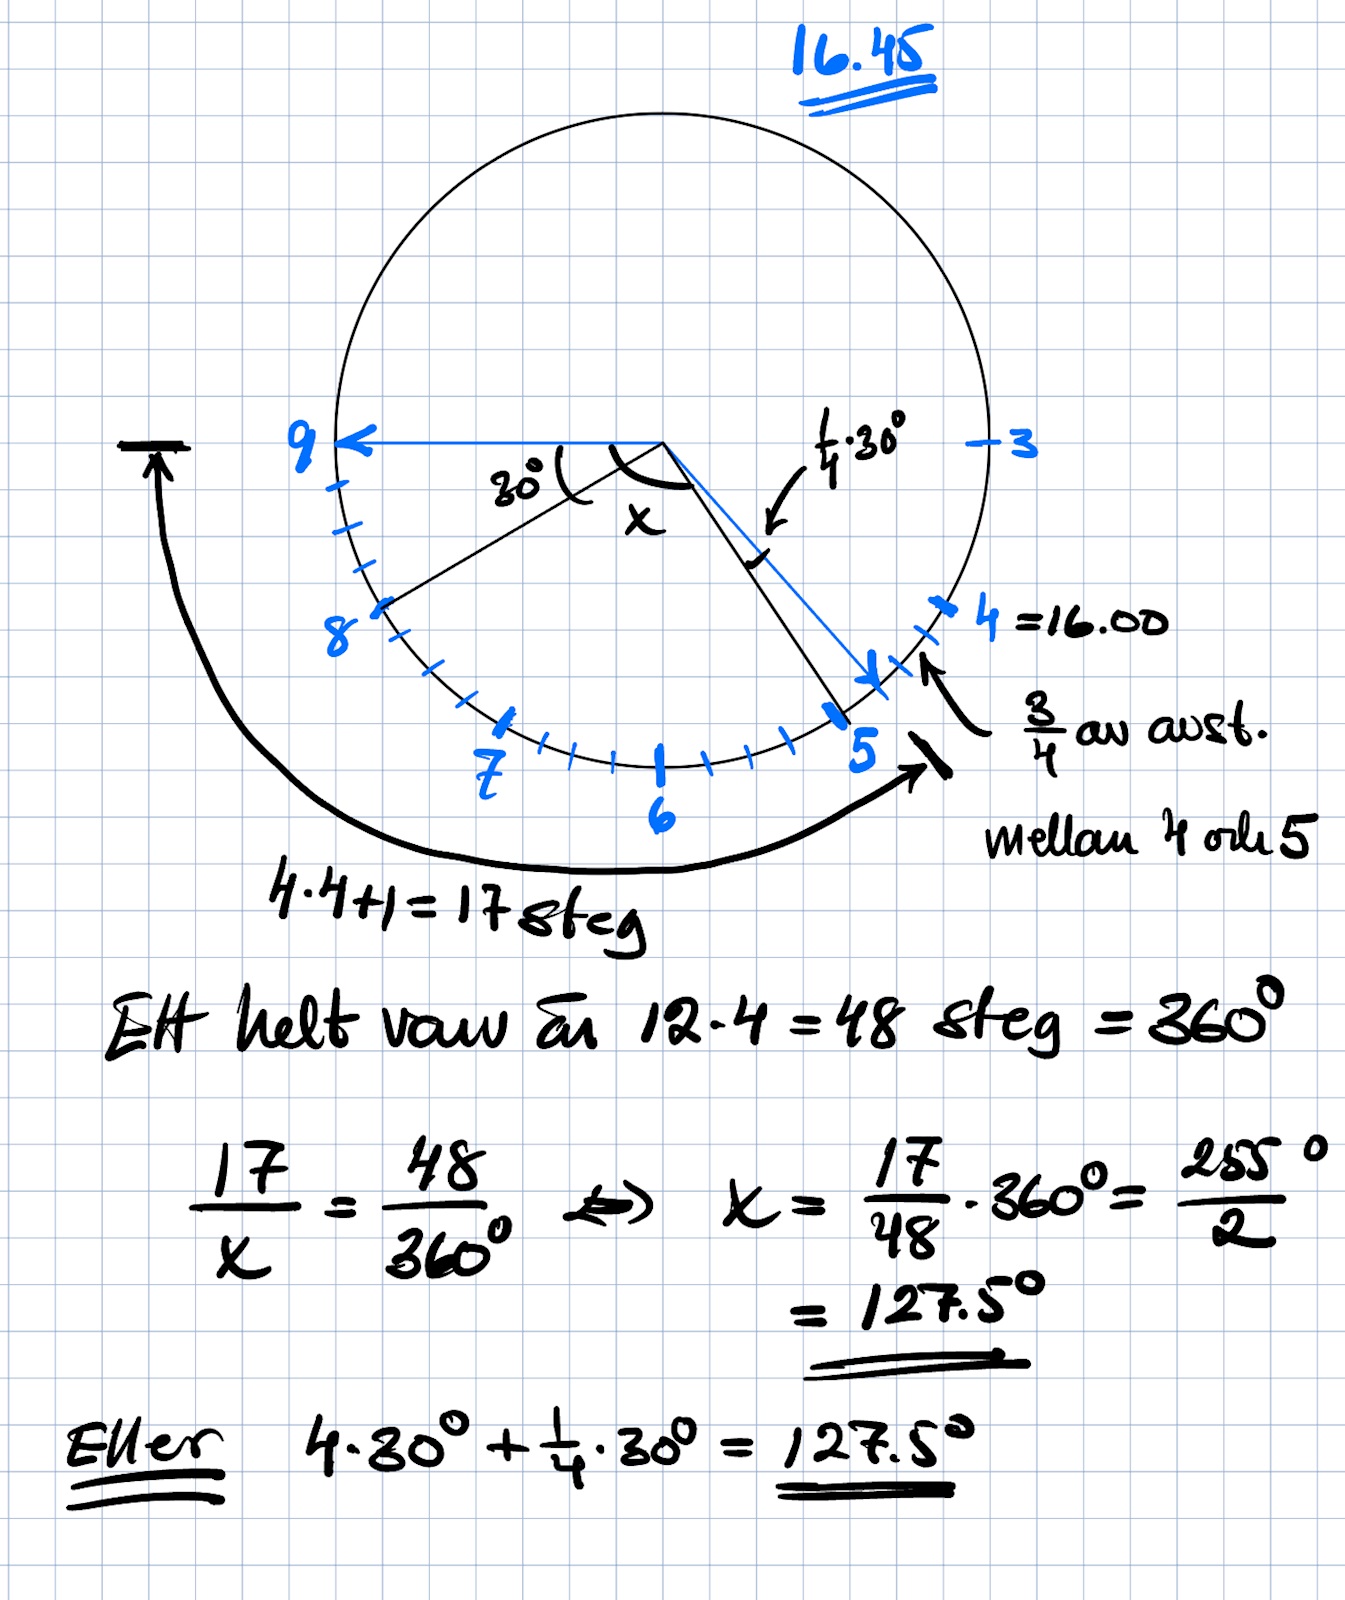 16.45
9
3
30°
x
1/4 · 30°
8
4 = 16.00
3/4 av avst.
mellan 4 och 5
7
6
5
4·4+1 = 17 steg
Ett helt varv är 12·4 = 48 steg = 360°
17/x = 48/360° ⇔ x = 17/48 · 360° = 255°/2
= 127.5°
Eller 4·30° + 1/4 · 30° = 127.5°